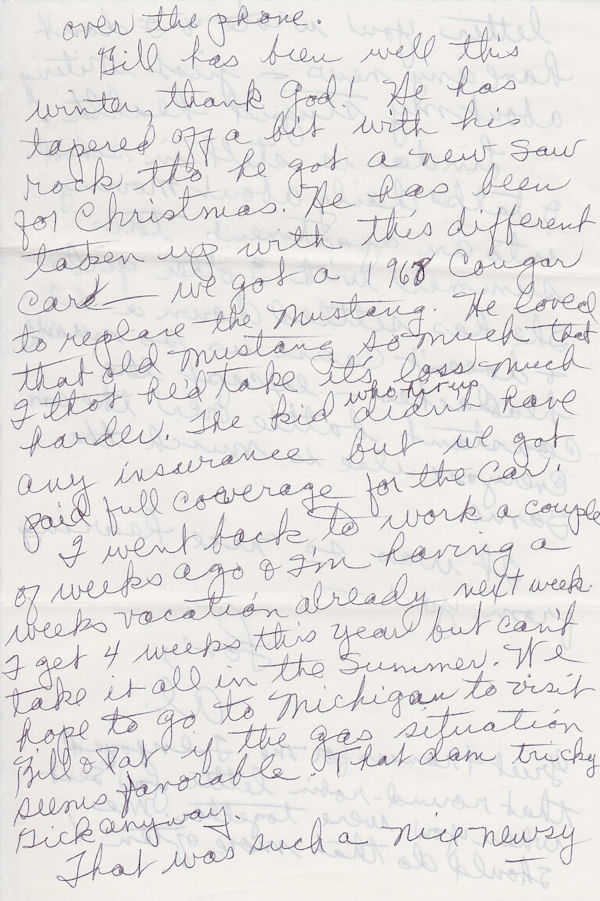 over the phone.
Bill has been well this
winter, thank God! He has
tapered off a bit with his
rock tho he got a new saw
for Christmas. He has been
taken up with this different
car — we got a 1968 Cougar
to replace the Mustang. He loved
that old Mustang so much that
I thot he'd take it's loss much
harder. The kid who hit us didn't have
any insurance but we got
paid full coverage for the car.
I went back to work a couple
of weeks ago & I'm having a
weeks vacation already next week.
I get 4 weeks this year but can't
take it all in the Summer. We
hope to go to Michigan to visit
Bill & Pat if the gas situation
seems favorable. That dam tricky
Dick anyway.
That was such a nice newsy